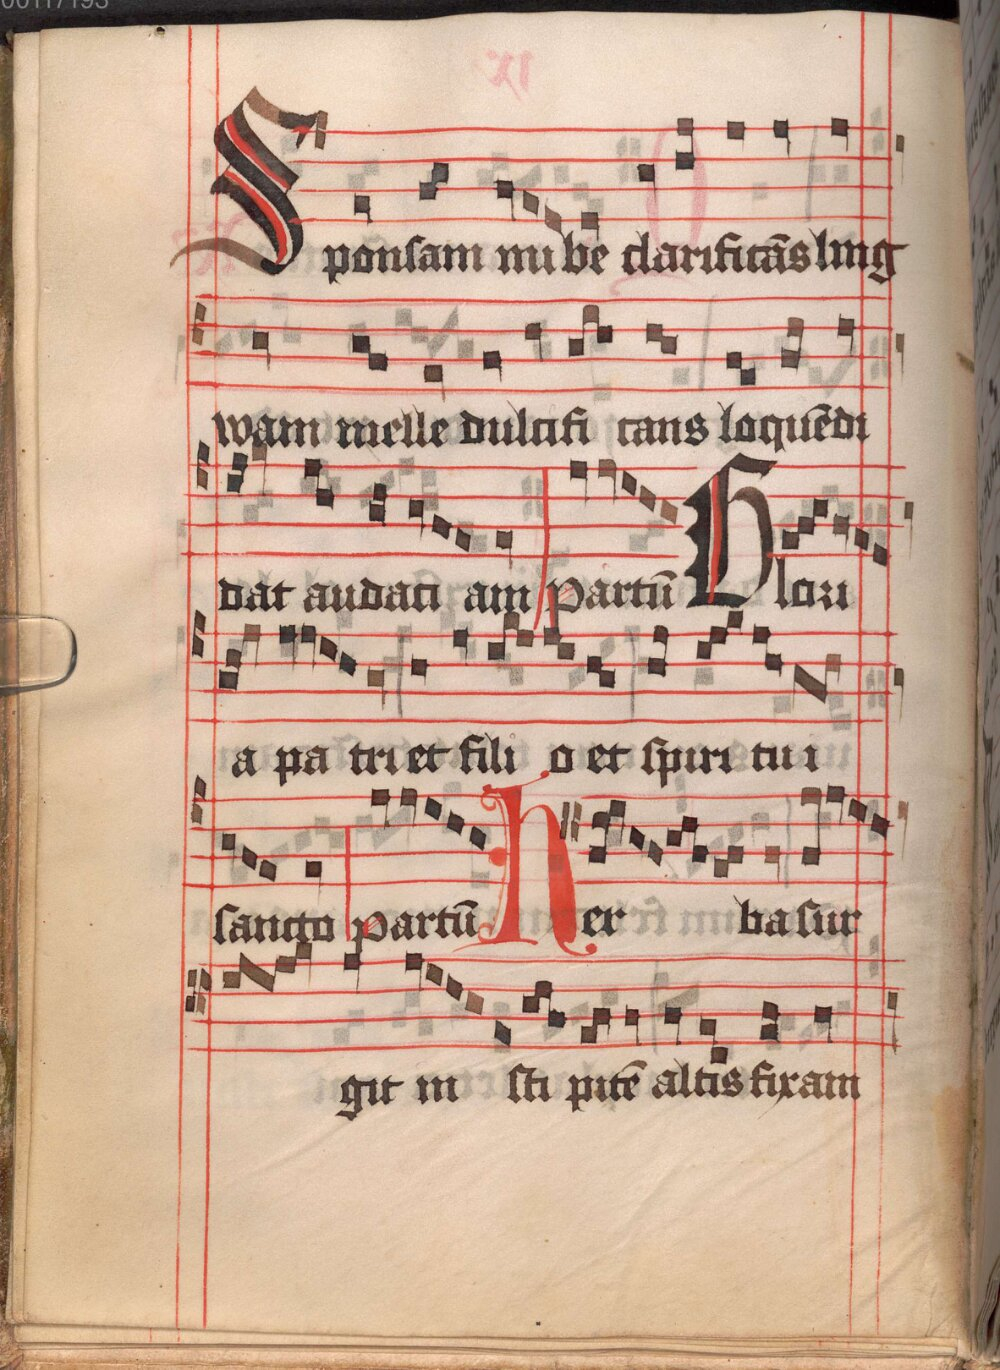 00117193
Sponsam nube clarificās ling
wam melle dulcifi cans loquēdi
dat audaci am partū Glori
a pa tri et fili o et spiri tu i
sancto partū Her ba sur
git in sti pitē altis fixam